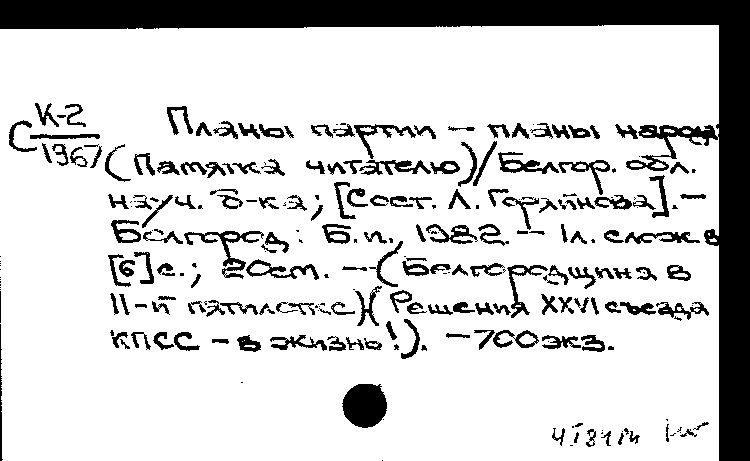 К-2
С 1967
Планы партии — планы народа
(Памятка читателю) / Белгор. обл.
науч. б-ка; [Сост. Л. Горяйнова]. —
Белгород: Б.и., 1982. — 1л. слож. в
[6] с.; 20см. — (Белгородщина в
11-й пятилетке) (Решения XXVI съезда
КПСС — в жизнь!). — 700экз.